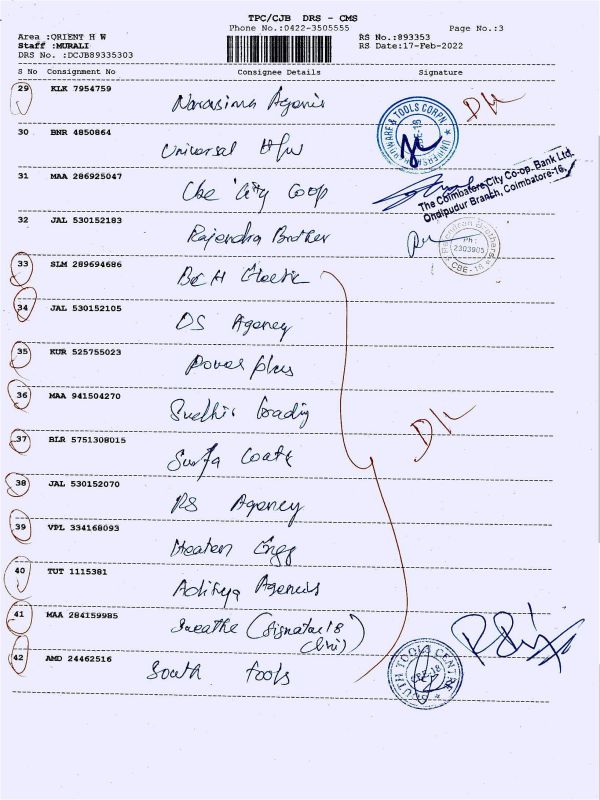 TPC/CJB DRS - CMS
Phone No.:0422-3505555
Page No.:3
Area :ORIENT H W
RS No.:893353
Staff :MURALI
RS Date:17-Feb-2022
DRS No. :DCJB89335303
S No Consignment No Consignee Details Signature
29 KLK 7954759 Narasima Agencis
30 BNR 4850864 Universal H/w
UNIVERSAL HARDWARE & TOOLS CORPN. CBE-18
31 MAA 286925047 Cbe City Coop
The Coimbatore City Co-op. Bank Ltd,
Ondipudur Branch, Coimbatore-16.
32 JAL 530152183 Rajendra Brother
Rajendran Brothers Ph : 2303905 CBE - 18
33 SLM 289694686 Electric
34 JAL 530152105 DS Agency
35 KUR 525755023 Power plus
36 MAA 941504270 Sudhir Trading
37 BLR 5751308015 Surfa Coats
38 JAL 530152070 RS Agency
39 VPL 334168093 Heaten Engg
40 TUT 1115381 Aditya Agencies
41 MAA 284159985 Sreathe
42 AMD 24462516 South Tools
SOUTH TOOLS CENTRE CBE-18